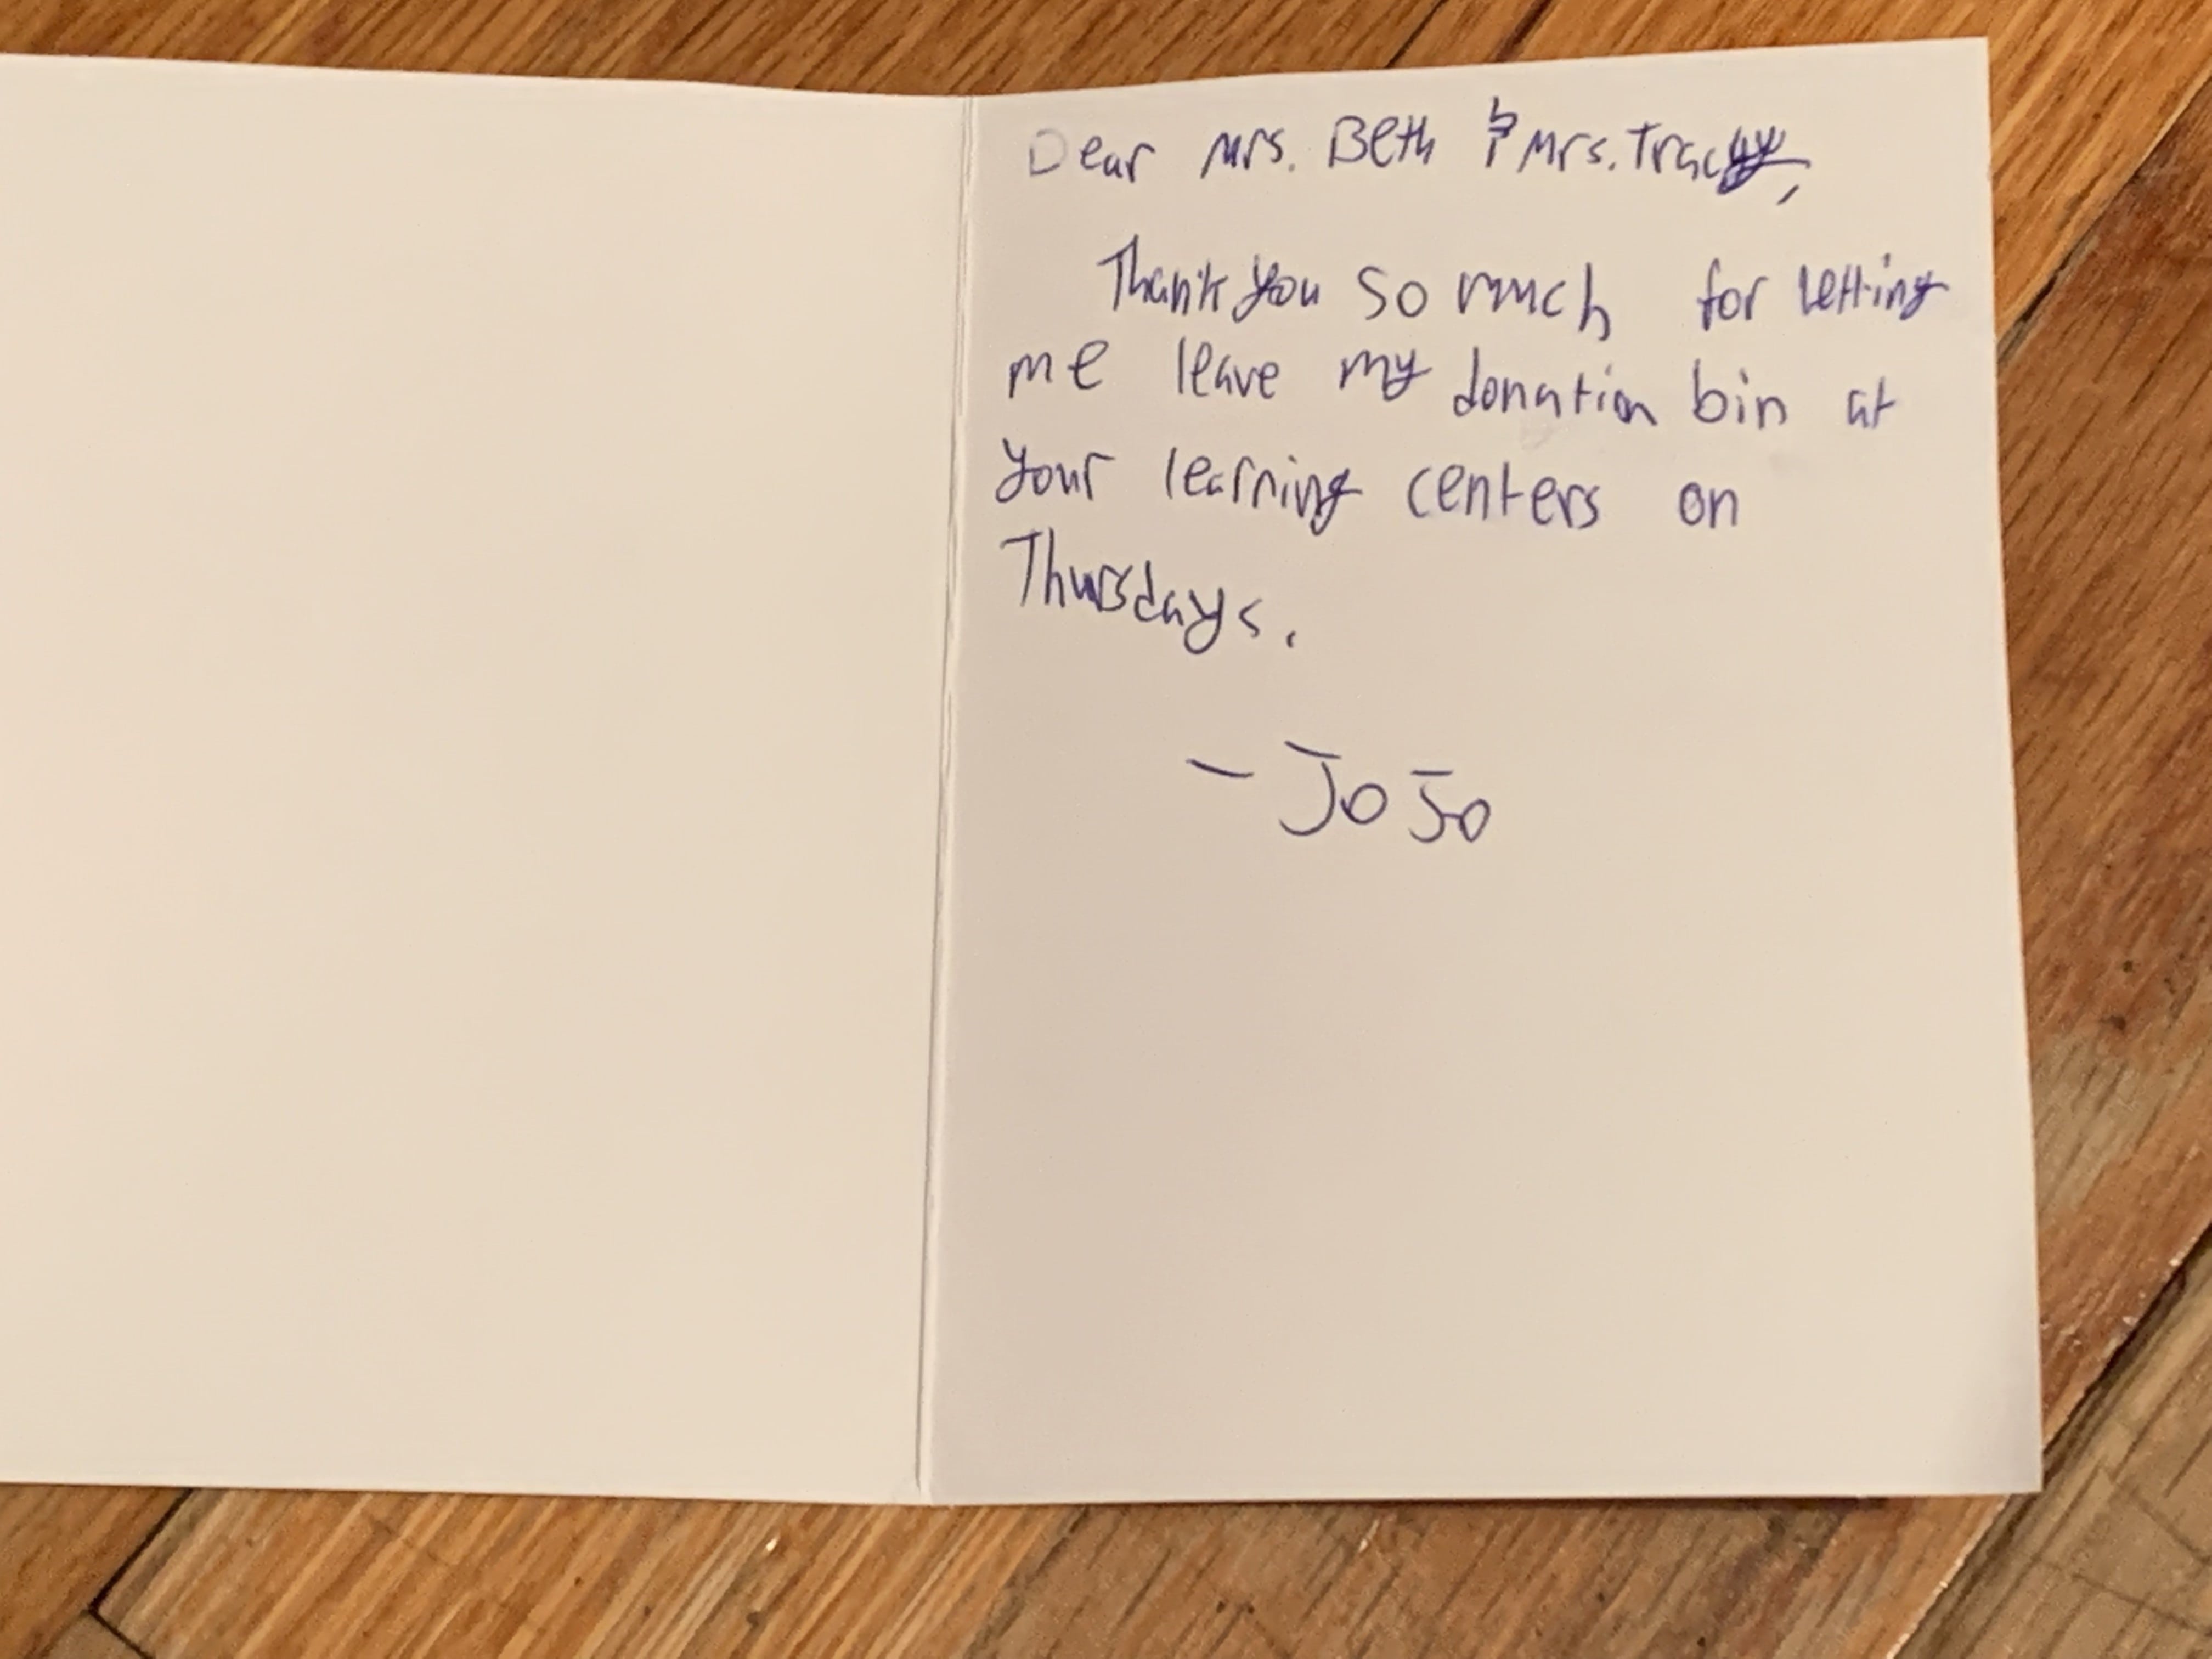 Dear Mrs. Beth & Mrs. Tracy,
Thank you so much for letting
me leave my donation bin at
your learning centers on
Thursdays.
- JoJo